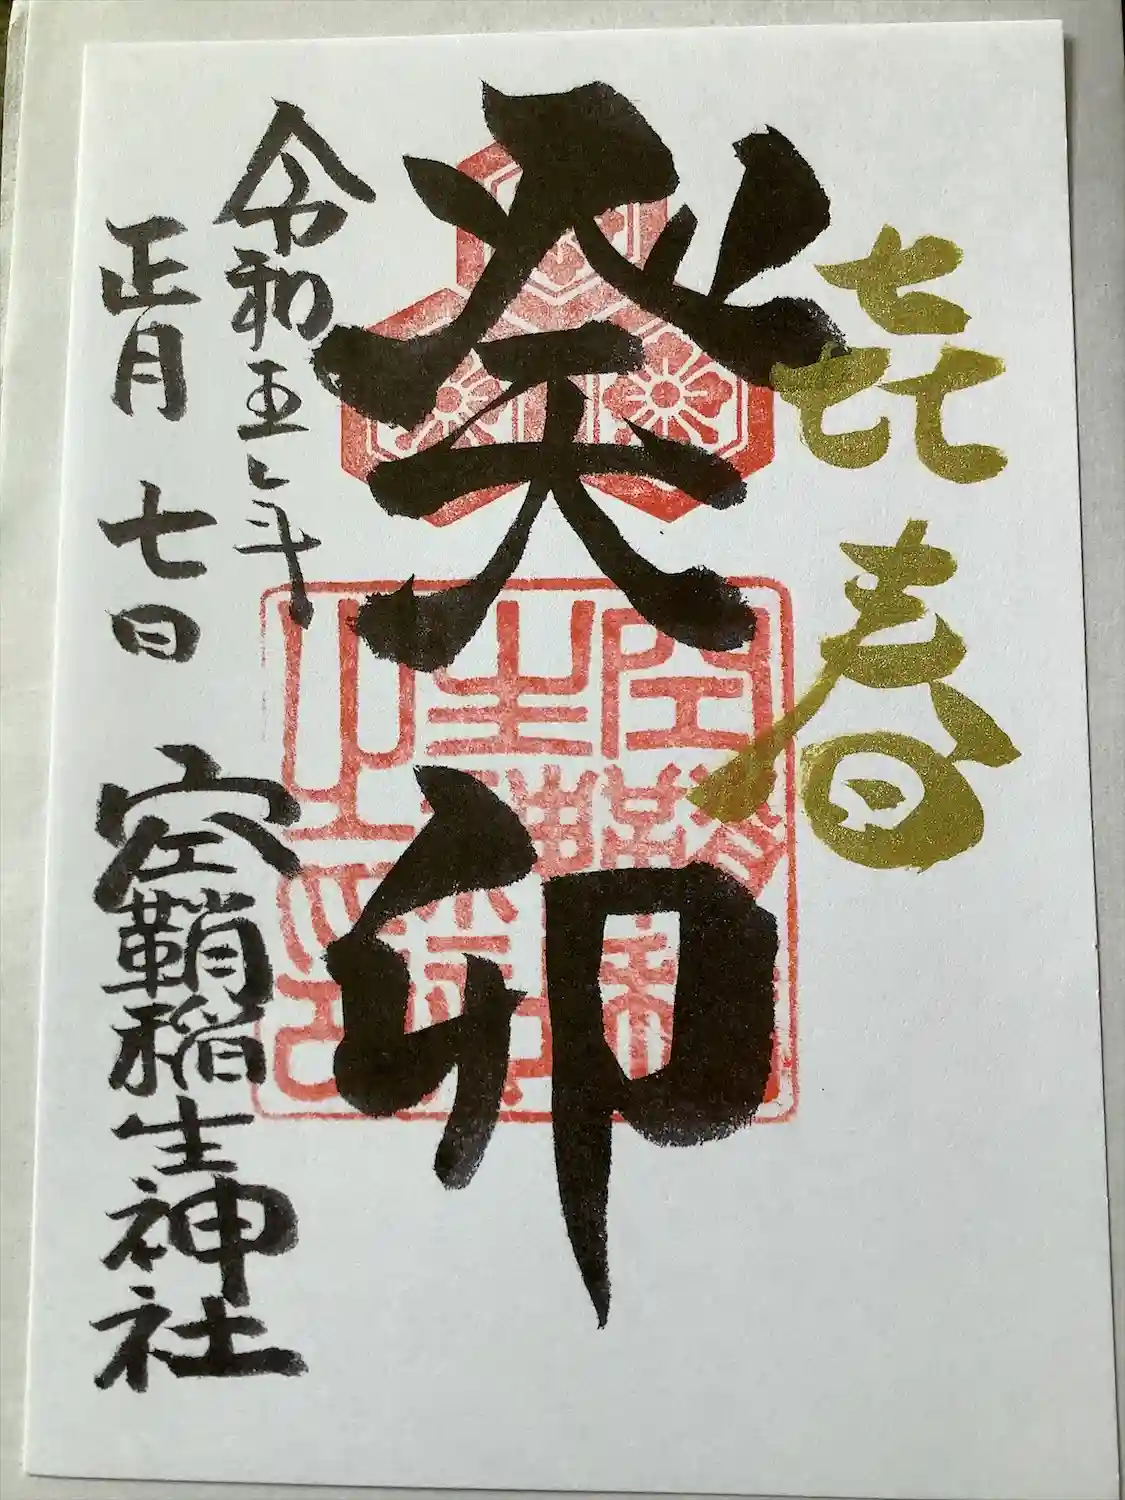 㐂春
癸卯
令和五年
正月七日
空鞘稲生神社